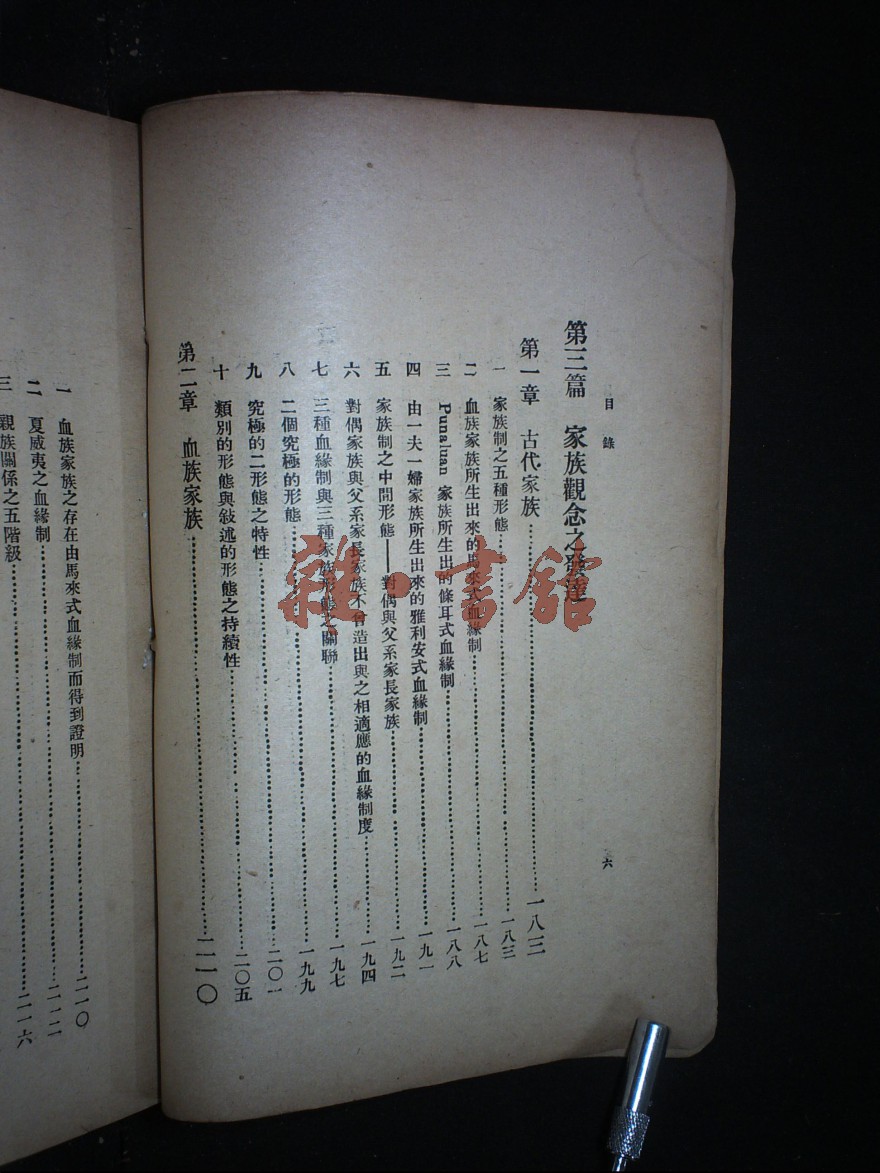 目錄
六
第三篇 家族觀念之發達
第一章 古代家族………一八三
一 家族制之五種形態………一八三
二 血族家族所生出來的馬來式血緣制………一八七
三 Punaluan 家族所生出的條耳式血緣制………一八八
四 由一夫一婦家族所生出來的雅利安式血緣制………一九一
五 家族制之中間形態——對偶與父系家長家族………一九二
六 對偶家族與父系家長家族不曾造出與之相適應的血緣制度………一九四
七 三種血緣制與三種家族形態之關聯………一九七
八 二個究極的形態………一九九
九 究極的二形態之特性………二〇一
十 類別的形態與敍述的形態之持續性………二〇五
第二章 血族家族………二一〇
一 血族家族之存在由馬來式血緣制而得到證明………二一〇
二 夏威夷之血緣制………二一二
三 親族關係之五階級………二一六
雜·書館